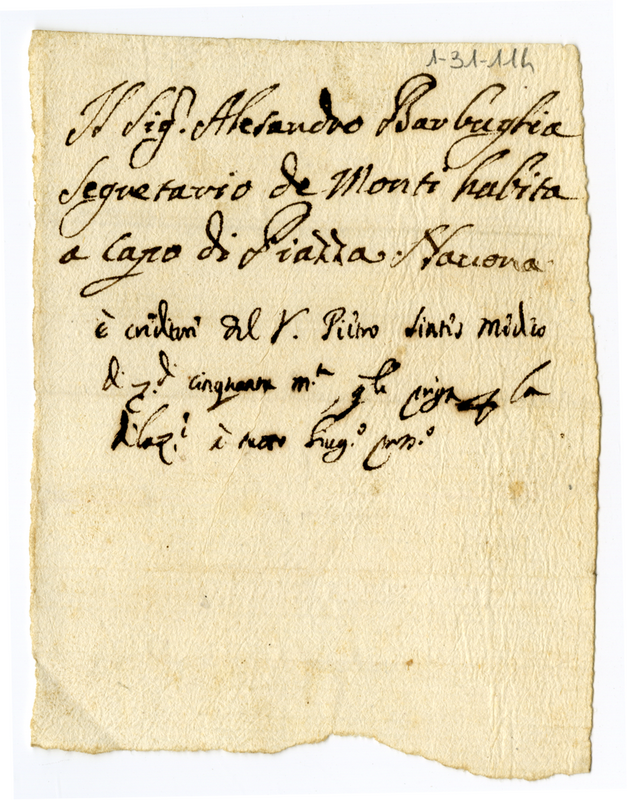 1-31-114
Il Sig.r Alesandro Barbuglia
Segretario de Monti habita
a capo di Piazza Navona
è creditore del S. Pietro medico
di cinquanta m.ta la
è tutto Giug.o pros.o